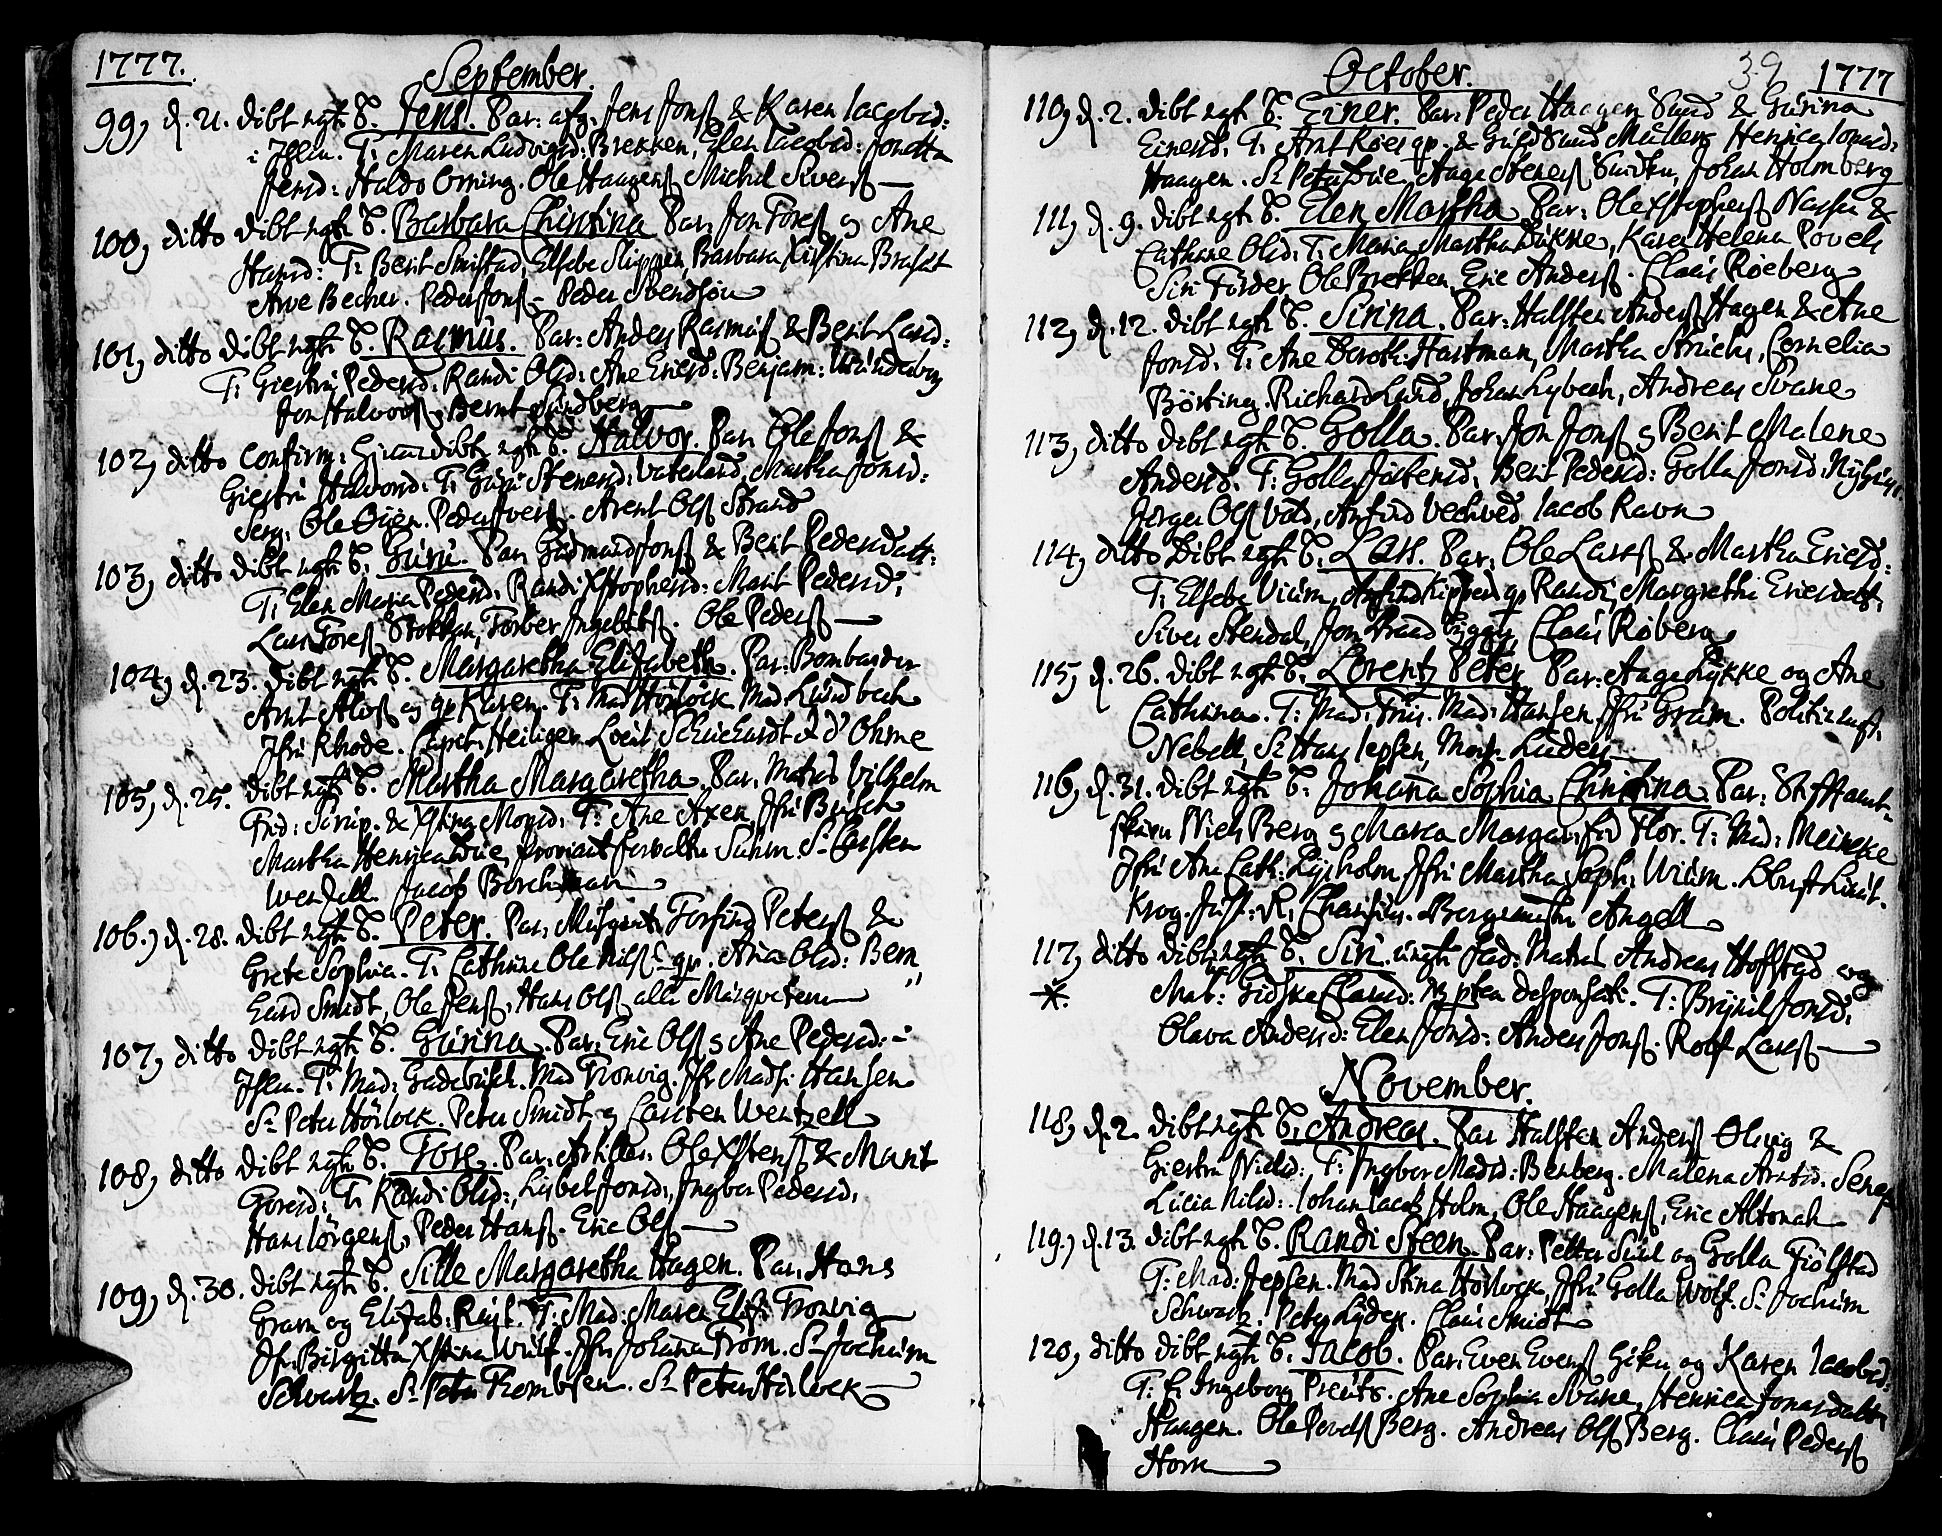 1777.
September.
99, d. 21. dibt ægt B. Jens. Par: afg. Jens Jonss & Karen Iacobsd:
i Jhlen. T: Maren Ludvigsd: Brekken, Elen Iacobsd: Jonetta
Jensd: Haldo Orning. Ole Haagenss Michel Siverss
100, ditto dibt ægt B. Barbara Christina Par: Jon Toress og Ane
Hansd: T: Berit Smistad, Elsebe Slippen, Barbara Xstina Brasüt
Arve Becher. Peder Jonss. Peder Svendsön
101, ditto dibt ægt B. Rasmüs. Par: Anders Rasmüss & Berit Larsd:
T: Giertrü Pedersd: Randi Olsd: Ane Ericsd: Benjam:
Jon Halvorss, Bernt Sundberg
102, ditto confirm: dibt ægt B. Halvor. Par: Ole Jonss &
Giertrü Halvorsd: T: Güri Stenersd: Vaterland, Martha Jonsd:
Serg: Ole Öyen. Peder Iverss. Arent Olss Strand
103, ditto dibt ægt B. Gürü. Par: Gudmund Jonss & Berit Pedersdatt:
T: Elen Maria Pedersd: Randi Xstophersd: Marit Pedersd:
Lars Toress Stokkan, Torber Ingebretss. Ole Pederss
104, d. 23. dibt ægt B. Margaretha Elisabeth. Par: Bombarder
Arnt Aloss og qv Karen. T: Mad Hörlöck Mad Lündbech
Jfrü Rhode. Capit: Heiliger Lieüt Schüchardt & d'Ohme
105, d. 25. dibt ægt B. Martha Margaretha Par: Matros Vilhelm
Frid: Sirüp. & Xstina Monsd: T: Ane Axen, Jfrü Büsch
Martha Henrica Düe, Proviantforvalter Suhm. Sr Carsten
Wensell. Jacob Borchman
106, d. 28. dibt ægt B. Peter. Par: Müsqvet: Torfind Peterss &
Grete Sophia. T: Cathrine Ole Nilss qv. Ana Olsd: Bern
hard Smidt, Ole Jenss, Hans Olss alle Müsqveterer
107, ditto dibt ægt B. Gürina. Par: Eric Olss & Ane Pedersd: i
Jhlen. T: Mad: Gadebüsch. Mad Tronvig. Jfr Mads: Hansen
Sr Peter Hörlock. Peter Smidt og Carsten Wentzell
108, ditto dibt ægt B. Tore. Par: Artiller: Ole Xstenss & Marit
Goresd: T: Randi Olsd:, Lisbet Jonsd:, Ingbor Pedersd:
Hans Iörgenss, Peder Hanss. Eric Olss
109, d. 30. dibt ægt B. Sille Margaretha Hagen. Par: Hans
Gram og Elisab: T: Mad: Maren Elis: Tronvig
Jfr: Birgitta Xstina Wulf. Jfr: Johanna From. Sr Jochüm
Schwartz. Sr Peter Trembsen. Sr Peter Hörlock
October. 39 1777
110, d. 2. dibt ægt B. Einer. Par: Peder Haagen Sund & Gürina
Einersd: T: Arnt Röes qv. & Güld Sund Müllers Henrica Ionasd:
Haagen. Sr Peter Düe. Aage Stenerss, Johan Holmberg
111, d. 9. dibt ægt B. Elen Martha. Par: Ole Xstopherss &
Cathrine Olsd: T: Maria Martha Lükke, Karen Helena Povels
Siri Förder, Ole Brekken, Eric Anderss. Claüs Röeberg
112, d. 12. dibt ægt B. Sirina. Par: Halsten Anderss Hagen & Ane
Jonsd: T: Ane Doroth: Hartman, Martha, Cornelia
Börting. Richard Lund, Johan Lybech, Andreas Svane
113, ditto dibt ægt B. Golla. Par: Jon Jonss & Berit Malene
Andersd. T: Golla Jörgensd: Berit Pedersd: Golla Jonsd Nyhüs
Jörgen Olss Vold, Anfind Vechved, Iacob Ravn
114, ditto dibt ægt B. Lars. Par: Ole Larss & Martha Ericsd:
T: Elsebe Viüm, Anfind Kippen qv Randi, Margrethe Ericsdatt.
Siver Stendal, Jon Brand, Claüs Röberg
115, d. 26. dibt ægt B. Lorentz Peter. Par: Aage Lykke og Ane
Cathrina. T: Mad: Friis. Mad: Hansen, Jfrü Gram. Politimst.
Nebell, Sr Hans Jepsen, Mons: Lüders
116, d. 31. dibt ægt B. Johana Sophia Christina. Par: Stiftamt-
skriver Niels Berg & Maren Margar: fød Flor. T: Mad: Meincke
Jfrü Ana Cath: Lysholm, Jfrü Martha Soph: Wiüm. Oberst Lieüt.
Krog. Just: R: Charisiüs. Bergmester Angell
117, ditto dibt ægt B. Siri. üægt. Fad: Matros Andreas Hoffstad og
* Mat: Gidske Clausd: NB ptea desponsati. T: Brynil Jonsd:
Olava Andersd: Elen Jonsd: Anders Jonss. Rolf Larss
November.
118, d. 2. dibt ægt B. Andreas. Par: Halsten Anderss Ölvig &
Giertru Nielsd: T: Ingbor Madsd: Benberg. Malena Arntsd:
Lücia Nilsd: Iohan Iacob Holm, Ole Haagenss, Eric Altonah
119, d. 13. dibt ægt B. Randi Steen. Par: Petter Süul og Golla Giölstad
T: Mad: Jepsen. Mad Stina Hörlock, Jfrü Golla Wolf. Sr Jochüm
Schwartz. Peter Lyder. Claüs Smidt
120, ditto dibt ægt B. Iacob. Par: Even Evenss Giker og Karen Iacobsd:
T: Ingeborg Preüts. Ane Sophia Svane, Henrica Jonasdatter
Haagen. Ole Povelss Berg. Andreas Olss Berg. Claüs Pederss
Horn